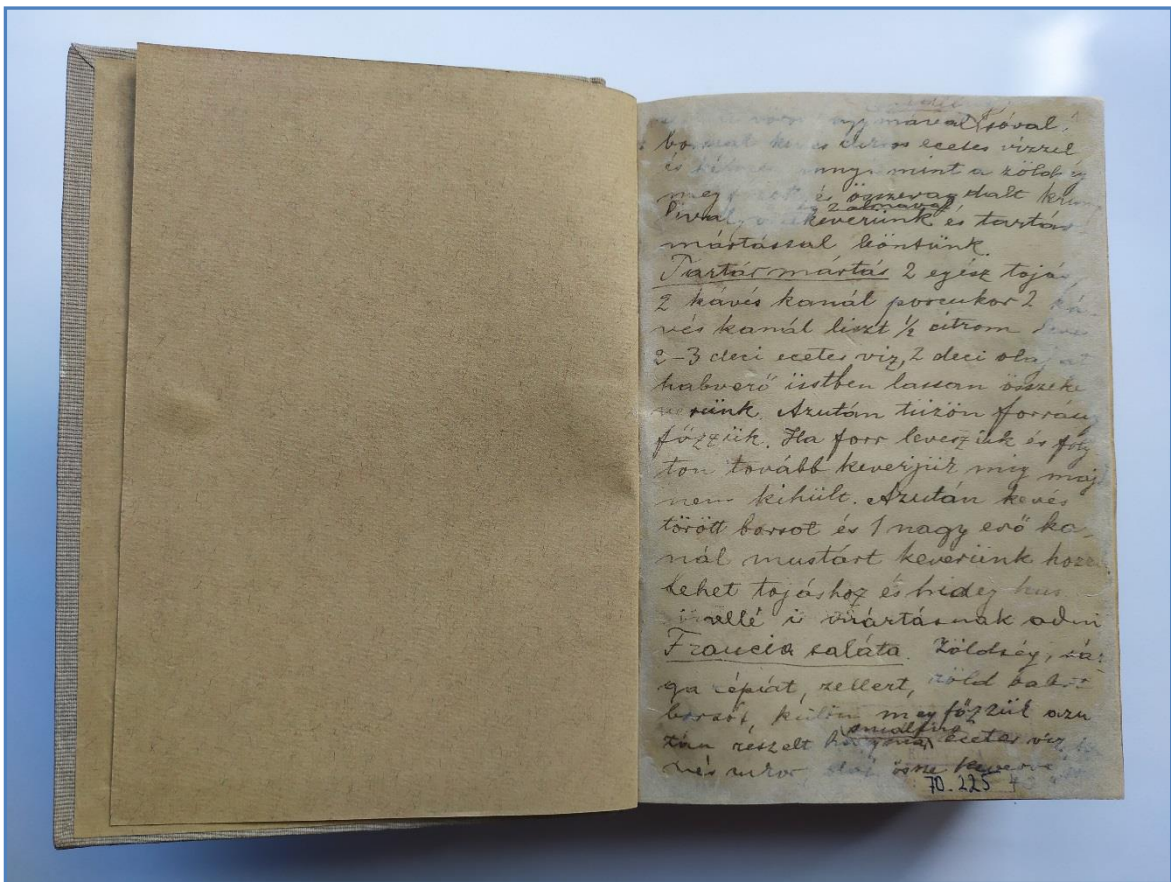 mával sóval
ecetes vízzel
mint a zöldség
és összevagdalt krum
2 almával
pival keverünk és tartár
mártással leöntünk.
Tartár mártás 2 egész tojá
2 kávés kanál porcukor 2 ká-
vés kanál liszt ½ citrom leve
2-3 deci ecetes viz, 2 deci olaj
habverő üstben lassan összeke
verünk. Azután tüzön forrásig
főzzük. Ha forr leveszük és foly
ton tovább keverjük mig maj
nem kihült. Azután kevés
törött borsot és 1 nagy evő ka
nál mustárt keverünk hozzá
Lehet tojáshoz és hideg hus
mellé is mártásnak adni
Francia saláta. Zöldség, sá-
ga répát, zellert, zöld bab
borsót, külön megfőzzük azu
tán reszelt hagyma ecetes viz
össze keverve
70.225